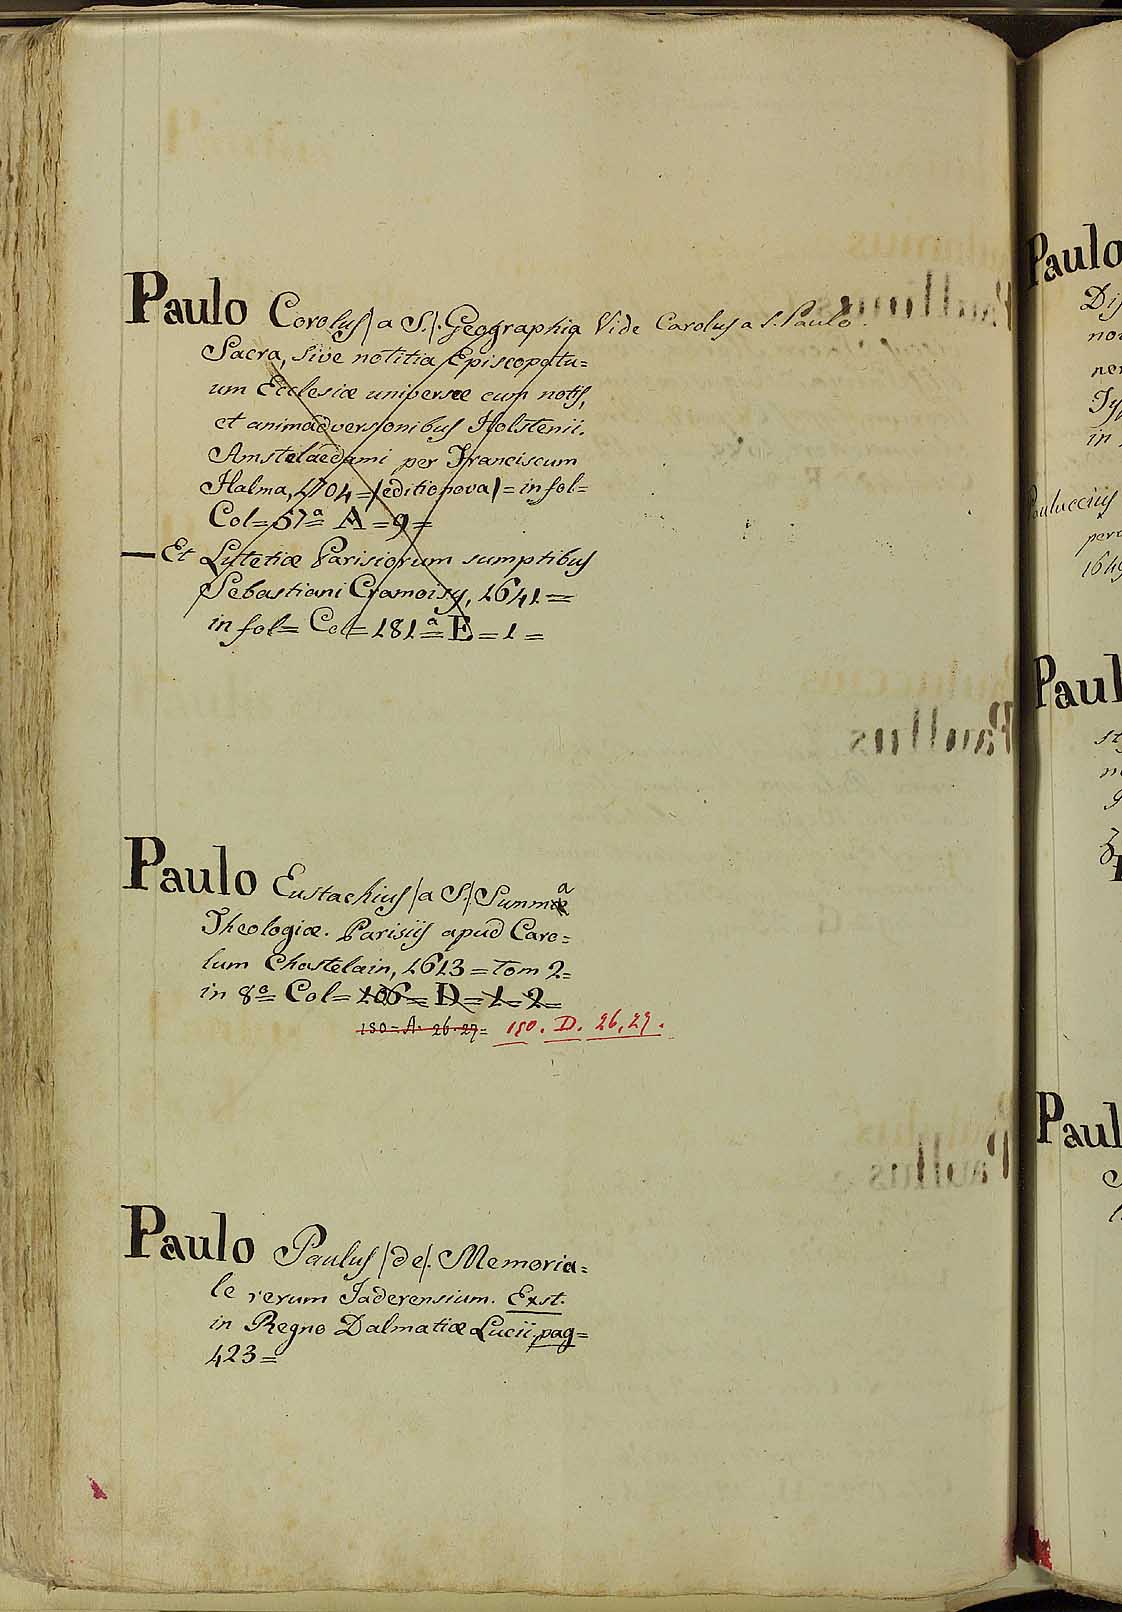 Paulo Corolus | a S. |. Geographia Vide Carolus a S. Paulo.
Sacra, sive notitia Episcopatu=
um Ecclesiæ universæ cum notis,
et animadversionibus Holstenii.
Amstelaedami per Franciscum
Halma, 1704 = | editio nova | = in fol=
Col= 57ª= A = 9 =
— Et Lutetiæ Parisiorum sumptibus
Sebastiani Cramoisy, 1641 =
in fol= Col= 181ª= E = 1 =
Paulo Eustachius | a S. | Summa
Theologiæ. Parisiis apud Caro=
lum Chastelain, 1613 = Tom 2=
in 8º= Col= 106= D= 1-2=
150= A. 26-27= 150. D. 26, 27.
Paulo Paulus | de |. Memoria=
le rerum Jaderensium. Exst.
in Regno Dalmatiæ Lucii pag=
423=
Paulo
Dis
Pauluccius
1649
Paul
Paul